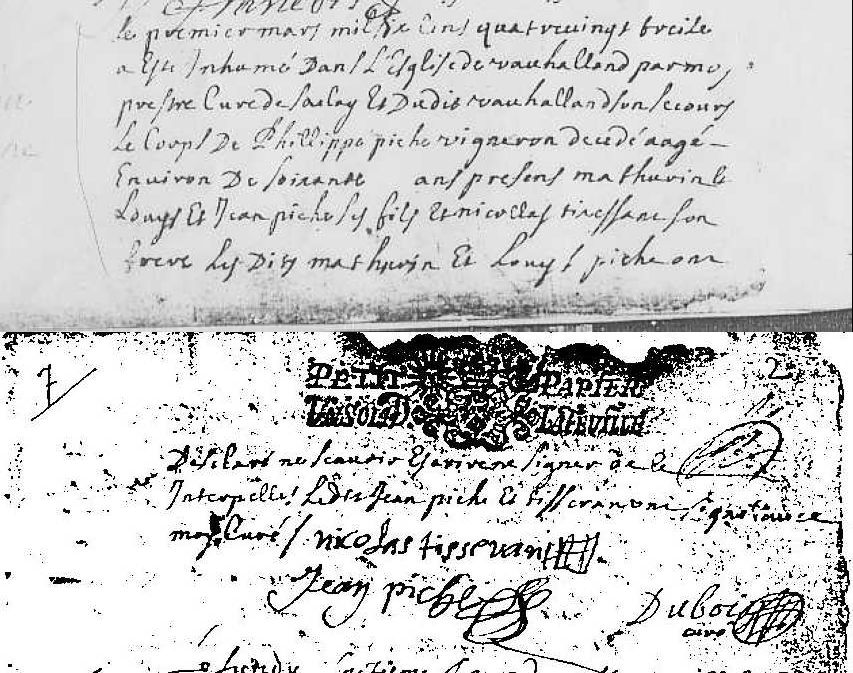 le premier mars mil six Cens quatrevingt treize
a Esté Inhumé Dans L'Eglise de vauhalland par moy
prestre Curé de saclay Et Dudit vauhalland son secours
Le Corps De Phillippe piche vigneron decedé aagé
Environ De soixante ans presens mathurin
Louys Et Jean piche ses fils Et nicollas tisserant son
frere Les Dits mathurin Et Louys piche ont
7
2
PETIT PAPIER
Desclaré ne scavoir Escrire ne signer de ce
Interpellés Ledit Jean piche Et tisseran ont signé avec
moy Curé /
nicolas tisseran
Jean piche
Dubois
curé